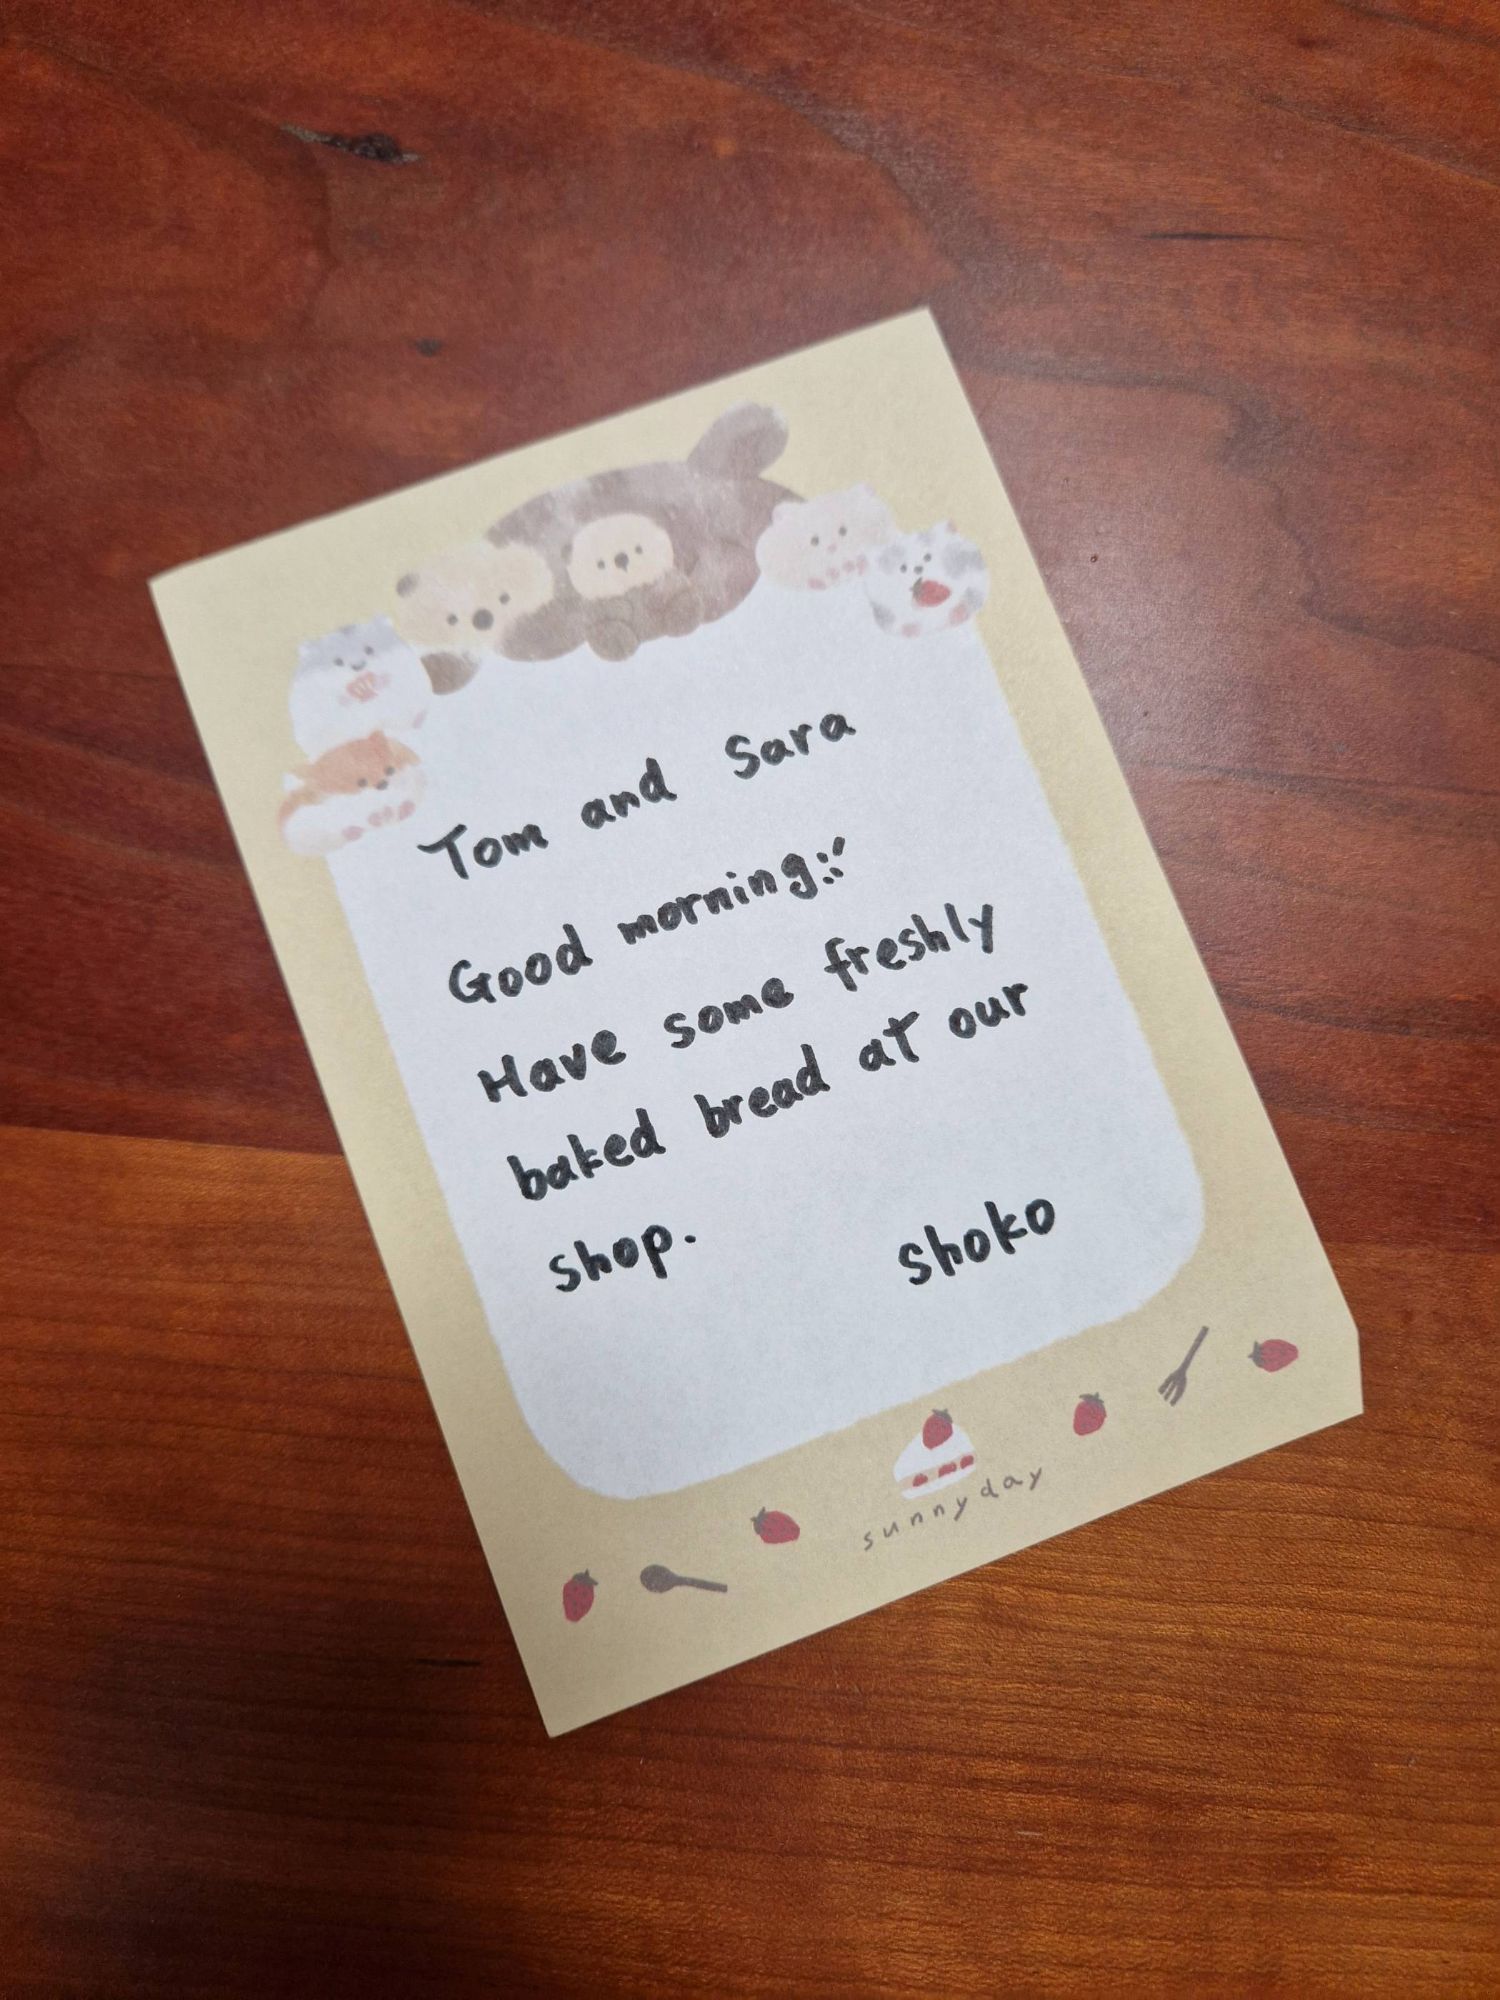 Tom and Sara
Good morning!!
Have some freshly
baked bread at our
shop.
Shoko
sunny day